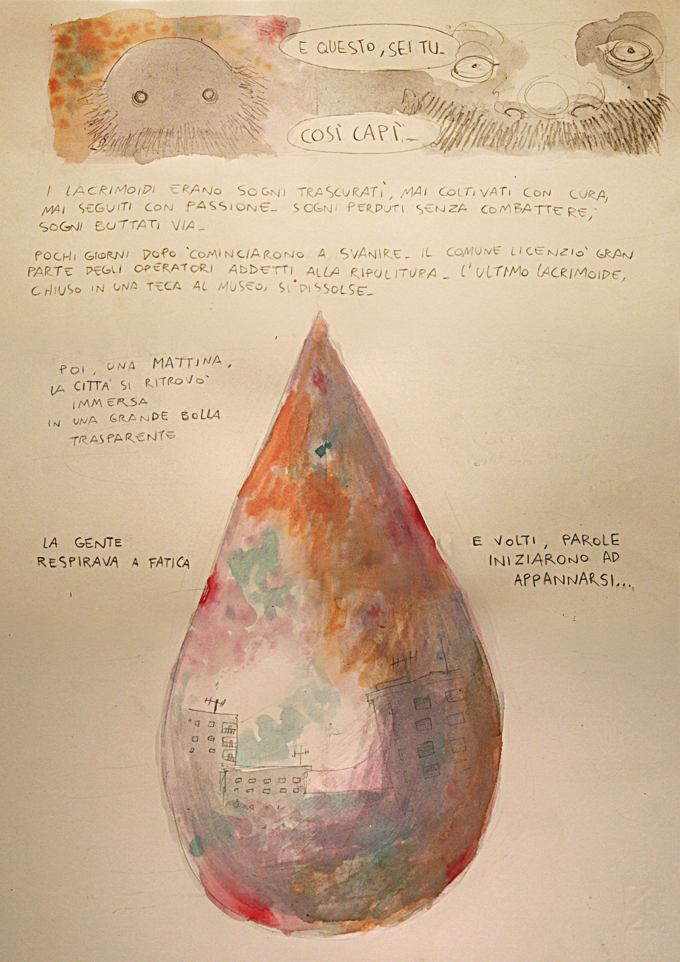 E QUESTO, SEI TU_
COSÌ CAPÌ_
I LACRIMOIDI ERANO SOGNI TRASCURATI, MAI COLTIVATI CON CURA,
MAI SEGUITI CON PASSIONE_ SOGNI PERDUTI SENZA COMBATTERE,
SOGNI BUTTATI VIA_
POCHI GIORNI DOPO COMINCIARONO A SVANIRE_ IL COMUNE LICENZIÒ GRAN
PARTE DEGLI OPERATORI ADDETTI ALLA RIPULITURA_ L'ULTIMO LACRIMOIDE,
CHIUSO IN UNA TECA AL MUSEO, SI DISSOLSE_
POI, UNA MATTINA,
LA CITTÀ SI RITROVÒ
IMMERSA
IN UNA GRANDE BOLLA
TRASPARENTE
LA GENTE
RESPIRAVA A FATICA
E VOLTI, PAROLE
INIZIARONO AD
APPANNARSI...